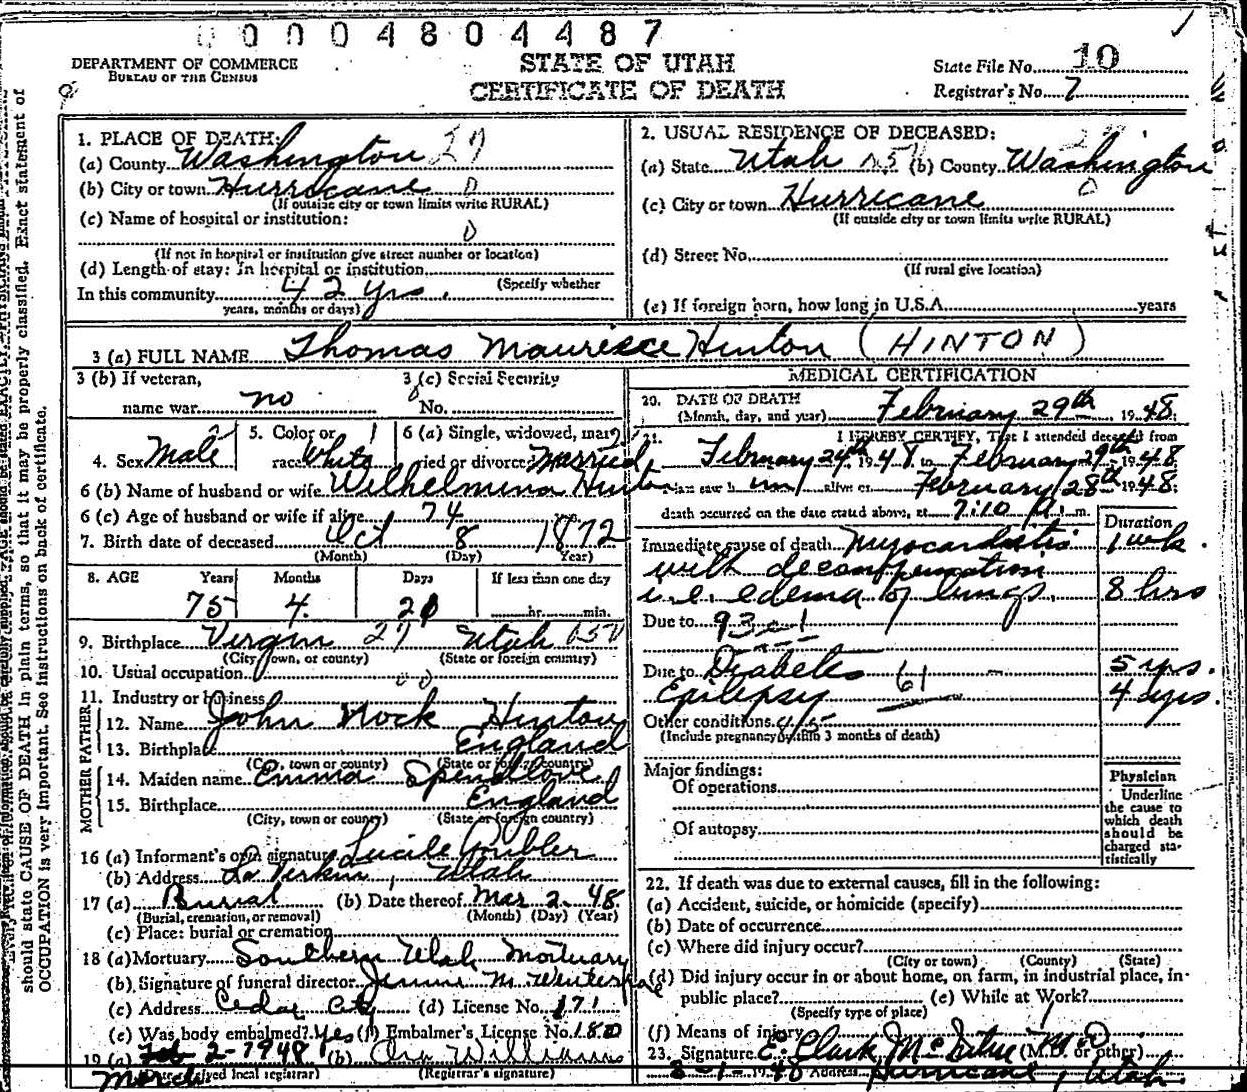 0 0 0 0 4 8 0 4 4 8 7
DEPARTMENT OF COMMERCE
BUREAU OF THE CENSUS
STATE OF UTAH
CERTIFICATE OF DEATH
State File No. 10
Registrar's No. 7
should state CAUSE OF DEATH in plain terms, so that it may be properly classified. Exact statement of
OCCUPATION is very important. See instructions on back of certificate.
1. PLACE OF DEATH:
(a) County Washington 27
(b) City or town Hurricane 0
(If outside city or town limits write RURAL)
(c) Name of hospital or institution:
0
(If not in hospital or institution give street number or location)
(d) Length of stay: In hospital or institution
(Specify whether
In this community 42 yrs.
years, months or days)
2. USUAL RESIDENCE OF DECEASED:
(a) State Utah (b) County Washington
(c) City or town Hurricane 0
(If outside city or town limits write RURAL)
(d) Street No.
(If rural give location)
(e) If foreign born, how long in U.S.A. years
3 (a) FULL NAME Thomas Maurice Hinton (HINTON)
3 (b) If veteran,
name war no
3 (c) Social Security
No.
4. Sex Male
5. Color or
race White
6 (a) Single, widowed, mar-
ried or divorced Married
6 (b) Name of husband or wife Wilhelmina Hinton
6 (c) Age of husband or wife if alive 74
7. Birth date of deceased Oct 8 1872
(Month) (Day) Year)
8. AGE Years Months Days If less than one day
75 4 21 hr. min.
9. Birthplace Virgin 27 Utah 650
(City, town, or county) (State or foreign country)
10. Usual occupation
11. Industry or business
FATHER
12. Name John Nock Hinton
13. Birthplace England
(City, town or county) (State or foreign country)
MOTHER
14. Maiden name Emma Spendlove
15. Birthplace England
(City, town or county) (State or foreign country)
16 (a) Informant's own signature Lucile Gubler
(b) Address La Verkin, Utah
17 (a) Burial (b) Date thereof Mar 2 48
(Burial, cremation, or removal) (Month) (Day) (Year)
(c) Place: burial or cremation
18 (a) Mortuary Southern Utah Mortuary
(b) Signature of funeral director M.
(c) Address Cedar City (d) License No. 171
(e) Was body embalmed? Yes (f) Embalmer's License No. 180
19 (a) Feb 2-1948 (b) Ora Williams
March
received local registrar) (Registrar's signature)
MEDICAL CERTIFICATION
20. DATE OF DEATH
(Month, day, and year) February 29th 1948
21. I HEREBY CERTIFY, That I attended deceased from
February 24th 1948 to February 29th 1948
I last saw him alive on February 28th 1948
death occurred on the date stated above, at 7:10 m.
Duration
Immediate cause of death Myocarditis 1 wk.
with decompensation
i.e. edema of lungs. 8 hrs
Due to 93
Due to Diabetes 61 5 yrs.
Epilepsy 4 yrs.
Other conditions
(Include pregnancy within 3 months of death)
Major findings:
Of operations
Of autopsy
Physician
Underline
the cause to
which death
should be
charged sta-
tistically
22. If death was due to external causes, fill in the following:
(a) Accident, suicide, or homicide (specify)
(b) Date of occurrence
(c) Where did injury occur?
(City or town) (County) (State)
(d) Did injury occur in or about home, on farm, in industrial place, in
public place? (e) While at Work?
(Specify type of place)
(f) Means of injury
23. Signature E. Clark McIntire M.D. (M.D. or other)
3-1-1948 Address Hurricane, Utah